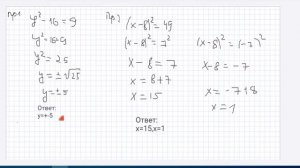 Пр1
y²-16=9
y²=16+9
y²=25
y=±√25
y=±5
Ответ:
y=+-5
Пр2
(x-8)²=49
(x-8)²=7²
x-8=7
x=8+7
x=15
(x-8)²=(-7)²
x-8=-7
x=-7+8
x=1
Ответ:
x=15,x=1